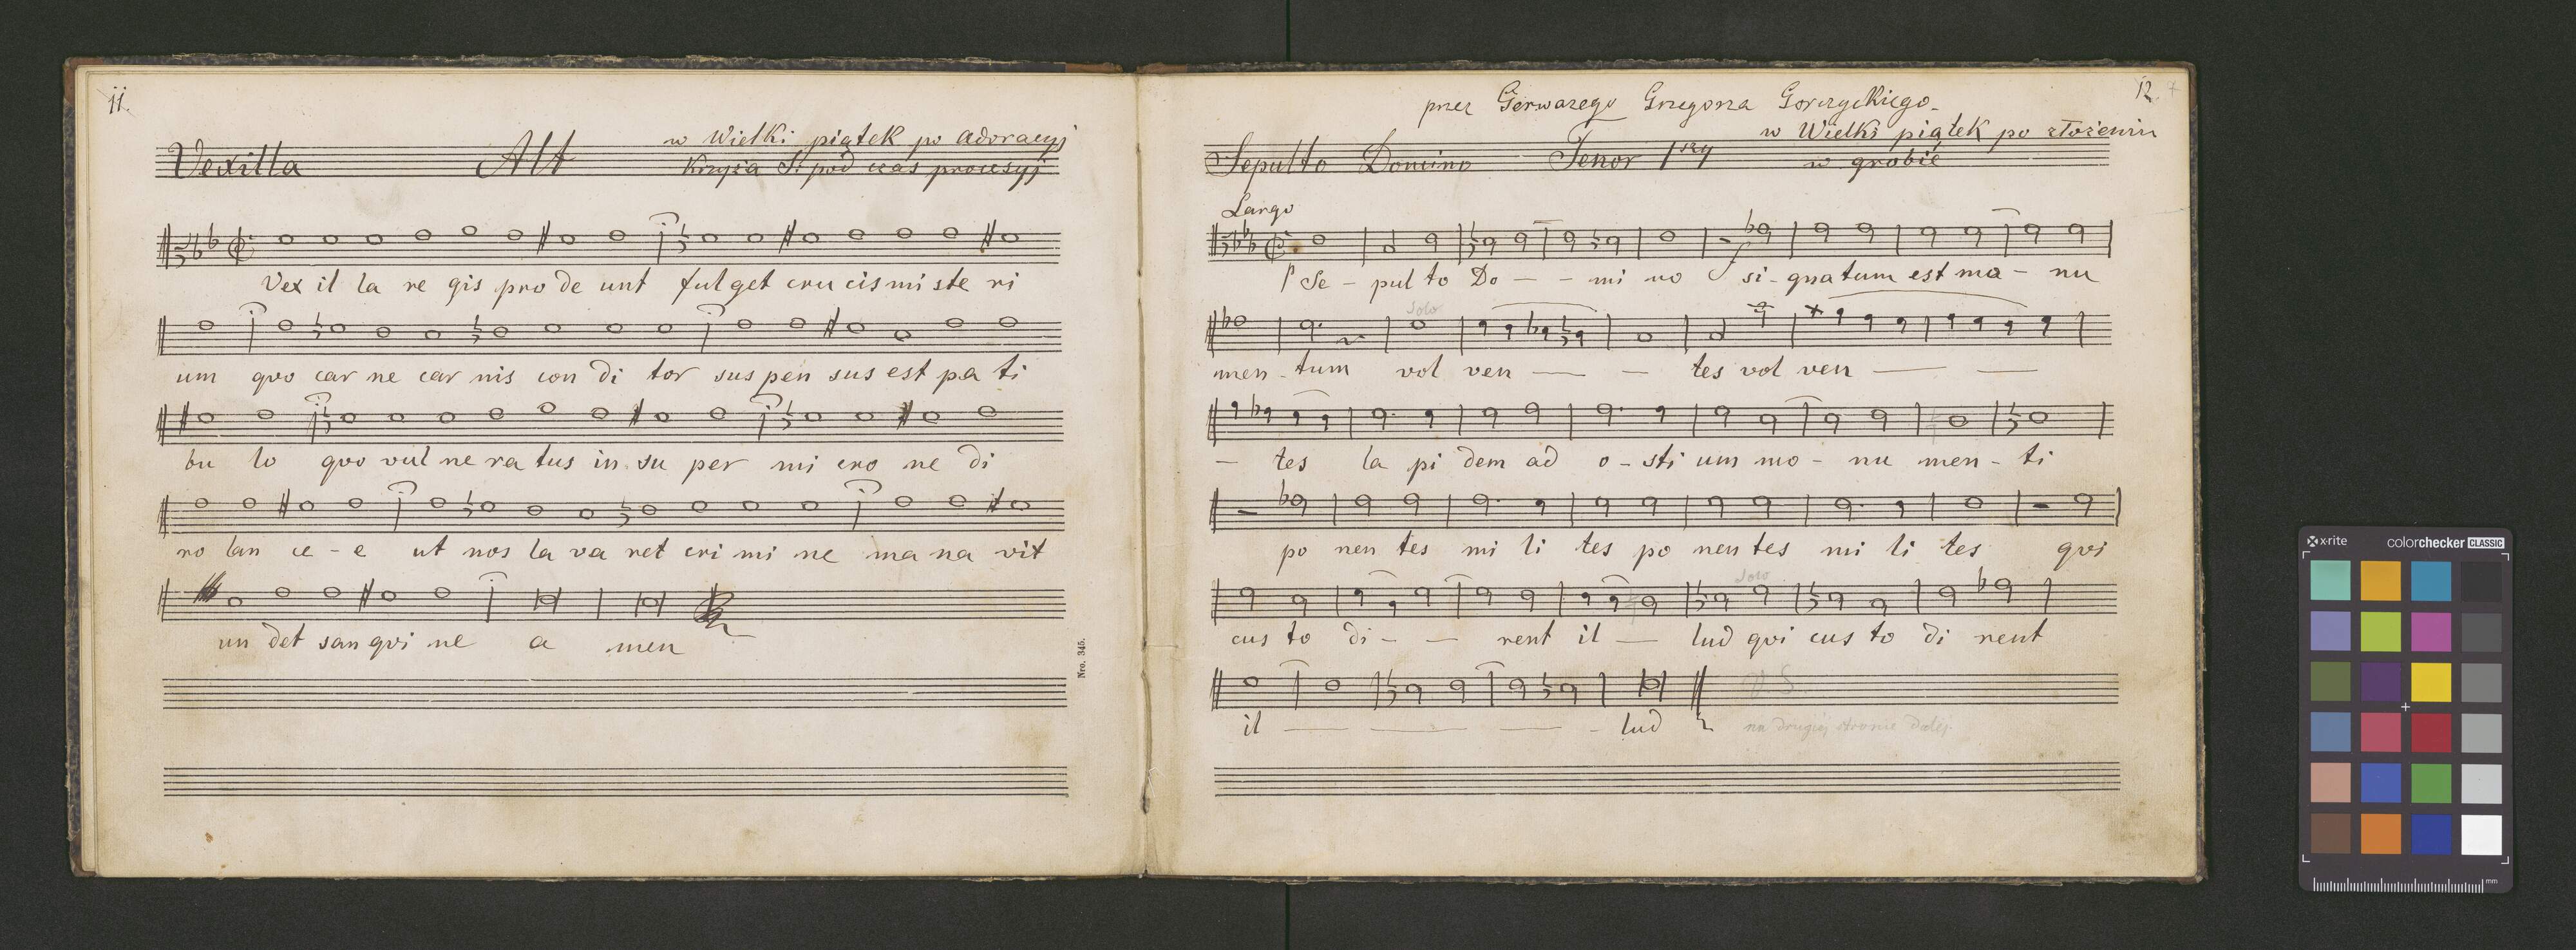 11.
Vexilla Alt w Wielki piątek po adoracyj
Krzyża S: pod czas procesyj
Vex il la re gis pro de unt ful get cru cis mi ste ri
um qvo car ne car nis con di tor sus pen sus est pa ti
bu lo qvo vul ne ra tus in su per mi cro ne di
ro lan ce - e ut nos la va ret cri mi ne ma na vit
un det san qvi ne a men
Nro. 345.
12.
przez Gerwazego Grzegorza Gorczyckiego.
w Wielki piątek po złożeniu
Sepulto Domino Tenor 1szy w grobie
Largo
p Se - pul to Do - - mi no f si - gna tum est ma - nu
Solo
men - tum vol ven — — tes vol ven — —
— tes la pi dem ad o - sti um mo - nu men - ti
po nen tes mi li tes po nen tes mi li tes qvi
Solo
cus to di - — rent il — lud qvi cus to di rent
il — — — - lud
D S
na drugiej stronie dalej
x-rite colorchecker CLASSIC
mm